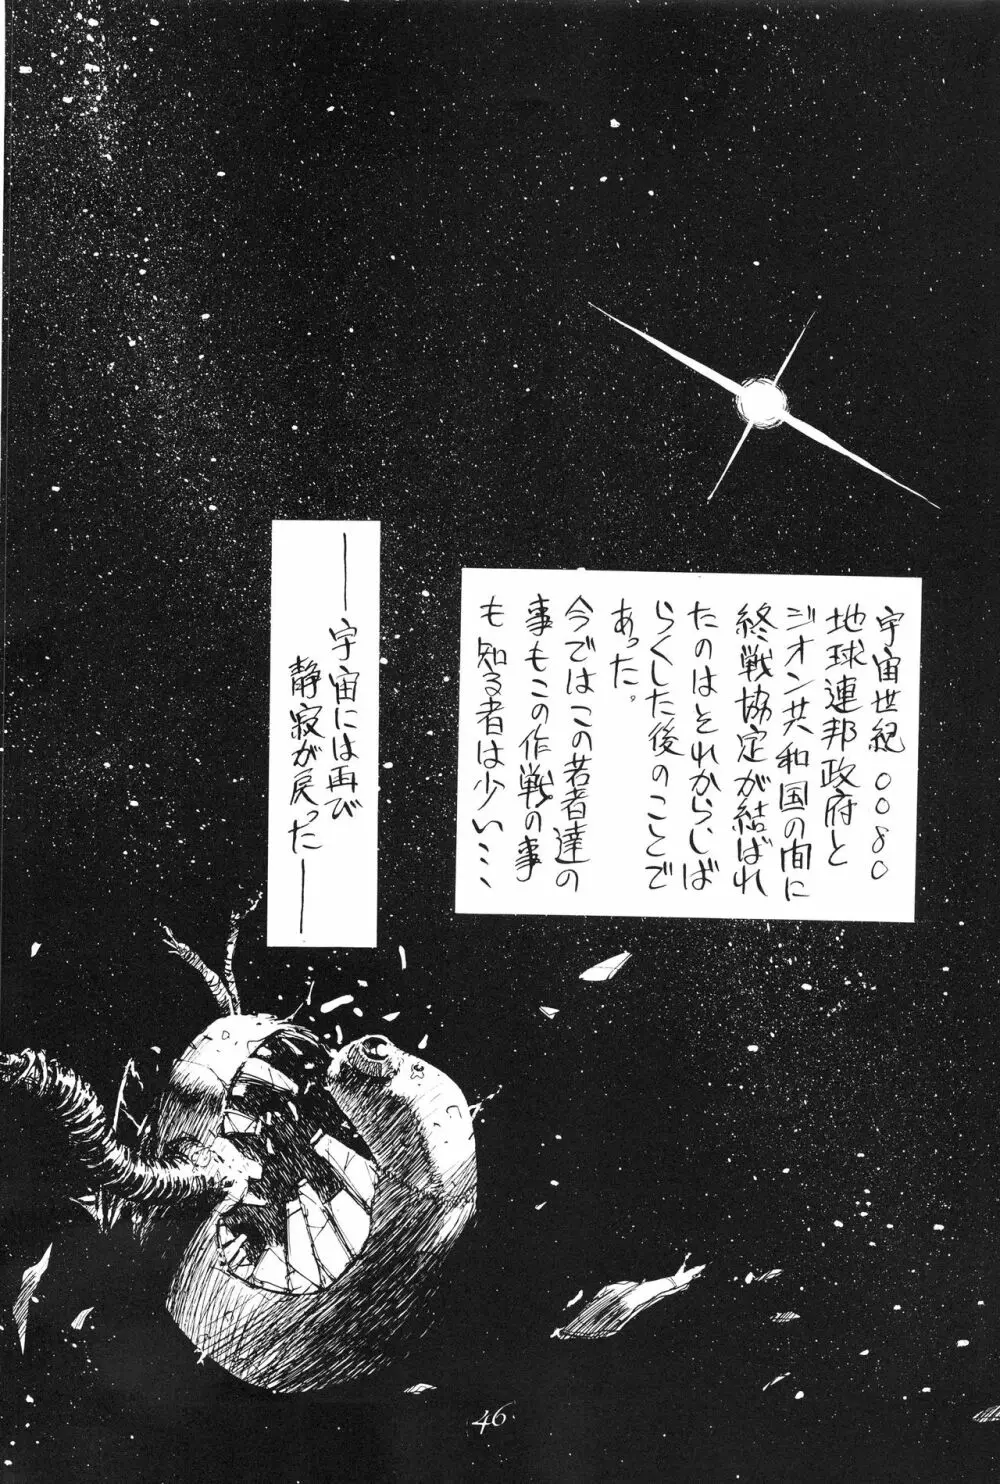 宇宙世紀〇〇八〇
地球連邦政府と
ジオン共和国の間に
終戦協定が結ばれ
たのはそれからしば
らくした後のことで
あった。
今ではこの若者達の
事もこの作戦の事
も知る者は少い…
――宇宙には再び
静寂が戻った――
46